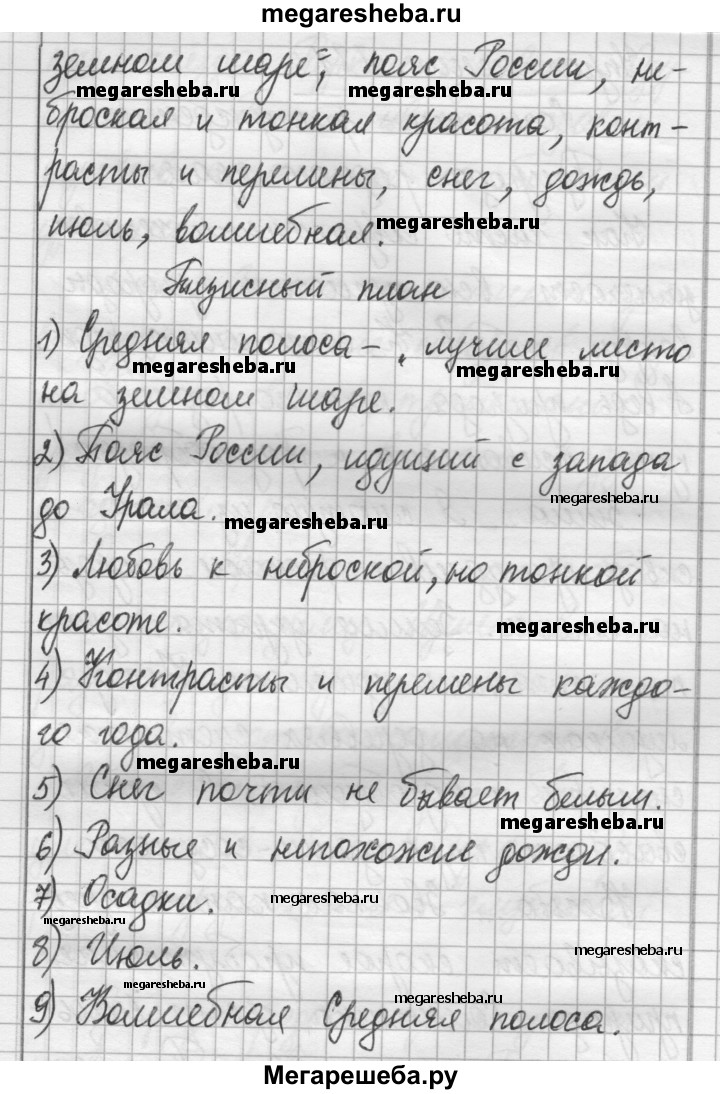 megaresheba.ru
земном шаре", пояс России, не-
megaresheba.ru megaresheba.ru
броская и тонкая красота, конт-
расты и перемены, снег, дождь,
июль, волшебная.
megaresheba.ru
Тезисный план
1) Средняя полоса - лучшее место
megaresheba.ru megaresheba.ru
на земном шаре.
2) Пояс России, идущий с запада
megaresheba.ru
до Урала.
megaresheba.ru
3) Любовь к неброской, но тонкой
красоте.
megaresheba.ru
4) Контрасты и перемены каждо-
го года.
megaresheba.ru
5) Снег почти не бывает белым.
megaresheba.ru
6) Разные и непохожие дожди.
7) Осадки.
megaresheba.ru
megaresheba.ru
8) Июль.
megaresheba.ru
megaresheba.ru
megaresheba.ru
9) Волшебная Средняя полоса.
Мегарешеба.ру